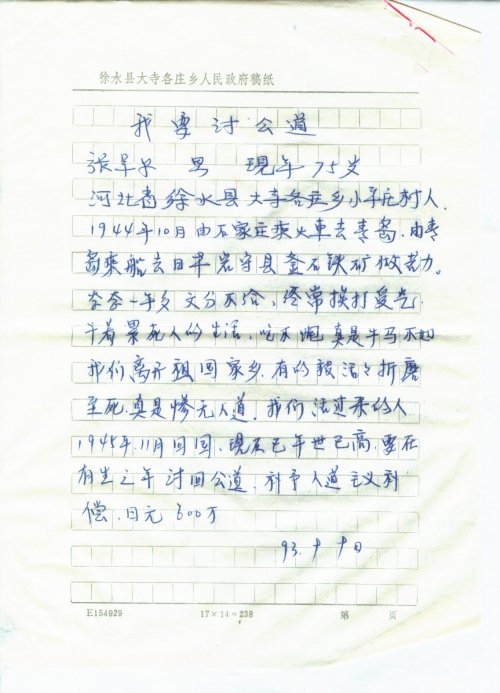 徐水县大寺各庄乡人民政府稿纸
我要讨公道
张 男 现年75岁
河北省徐水县大寺各庄乡小辛庄村人.
1944年10月由石家庄乘火車去青岛.由青
岛乘船去日本岩守县釜石铁矿做劳力.
整整一年多文分不给,经常挨打受气.
干着累死人的生活,吃不饱真是牛马不如
我们离开祖国家乡.有的被活々折磨
至死.真是惨无人道.我们活过来的人
1945年.11月回国.现在已年世已高.要在
有生之年讨回公道.补予人道主义补
偿.日元600万
93.9.9日
E154929 17×14=238 第 页